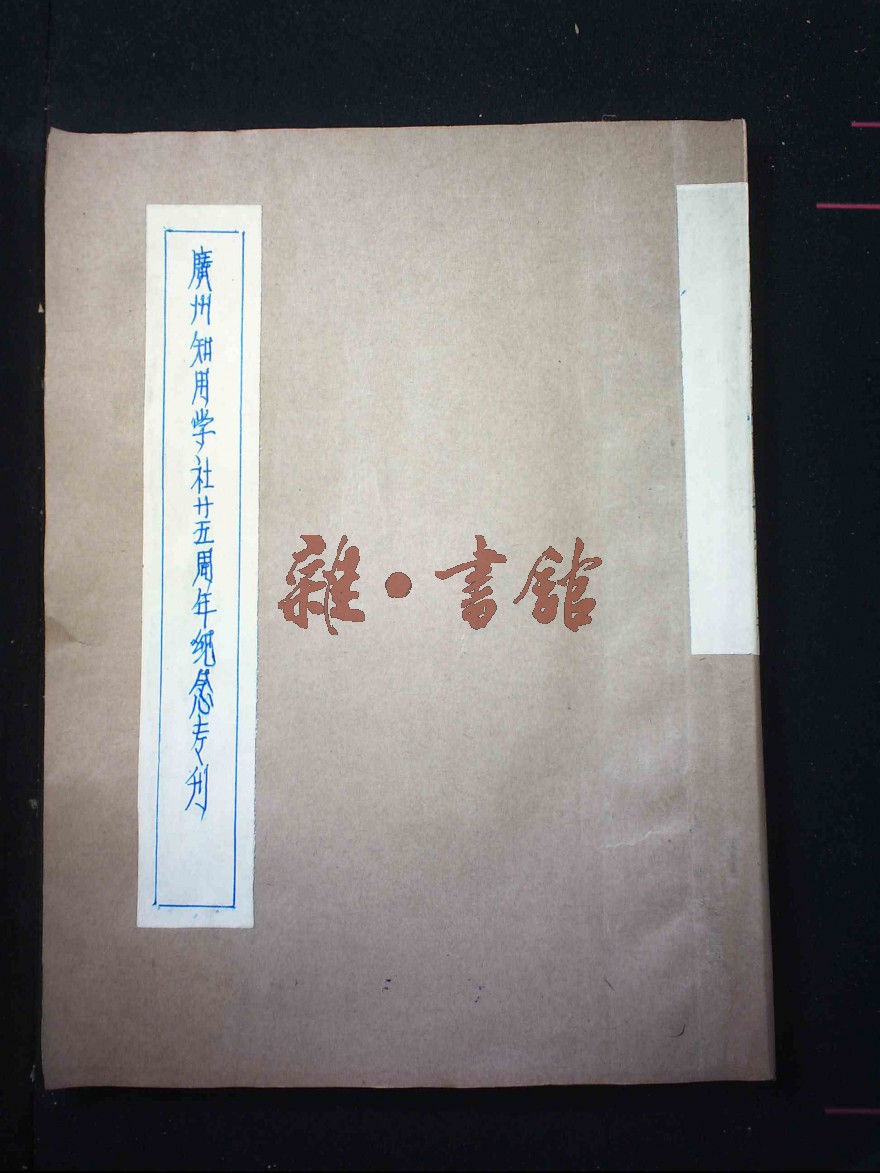 廣州知用学社廿五周年纪念专刊
雜·書館